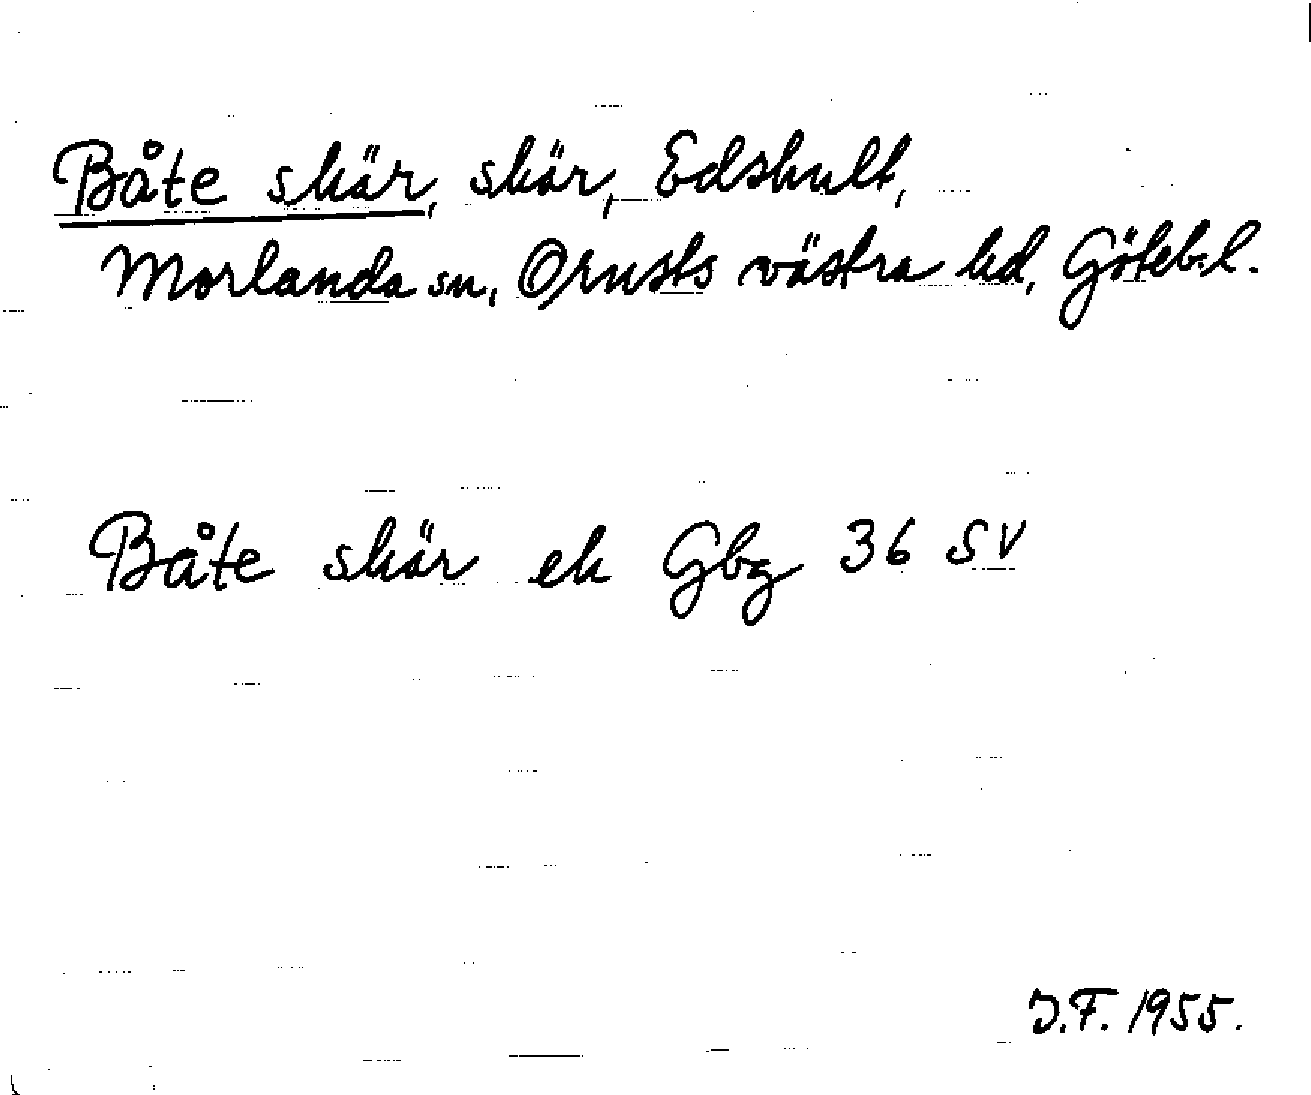 Båte skär, skär, Edshult,
Morlanda sn, Orusts västra hd, Göteb.l.
Båte skär ek Gbg 36 SV
J.F. 1955.